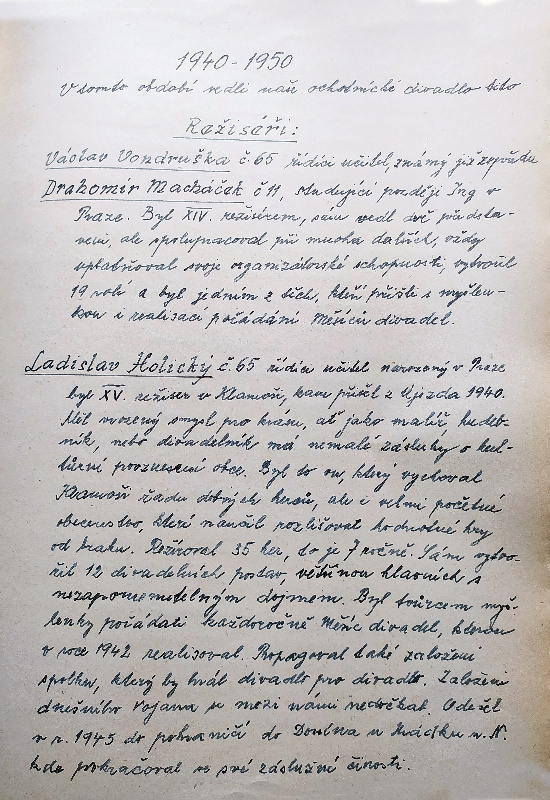 1940-1950
V tomto období vedli naše ochotnické divadlo tito
Režiséři:
Václav Vondruška č.65 řídící učitel, známý již zepředu
Drahomír Macháček č 11, studující později Ing v
Praze. Byl XIV. režisérem, sám vedl dvě představe-
ní, ale spolupracoval při mnoha dalších, vždy
uplatňoval svoje organizátorské schopnosti, vytvořil
19 rolí a byl jedním z těch, kteří přišli s myšlen-
kou i realisací pořádání Měsíců divadel.
Ladislav Holický č.65 řídící učitel narozený v Praze
byl XV. režiser v Klamoši, kam přišel z Újezda 1940.
Měl vrozený smysl pro krásu, ať jako malíř, hudeb-
ník, nebo divadelník má nemalé zásluhy o kul-
turní povznesení obce. Byl to on, který vychoval
Klamoši řadu dobrých herců, ale i velmi početné
obecenstvo, které naučil rozlišovat hodnotné hry
od braku. Režíroval 35 her, to je 7 ročně. Sám vytvo-
řil 12 divadelních postav, většinou hlavních s
nezapomenutelným dojmem. Byl tvůrcem myš-
lenky pořádati každoročně Měsíc divadel, kterou
v roce 1942 realisoval. Propagoval také založení
spolku, který by hrál divadlo pro divadlo. Založení
dnešního Vojana se mezi námi nedočkal. Odešel
v r. 1945 do pohraničí do Donína u Hrádku n. N.
kde pokračoval ve své záslužné činosti.